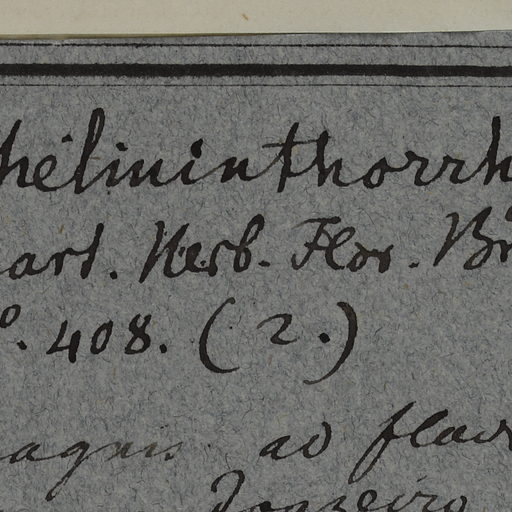 helminthorrh
art. Herb. Flor. Br
o. 408. (2.)
agnis ad flav
Janeiro